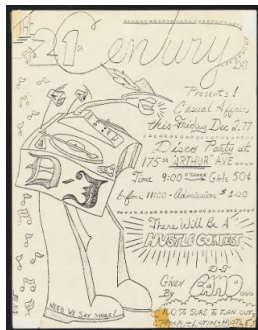 21st Century
Presents!
Casual Affair
this Friday Dec 2, 77
Disco Party at
175th "ARTHUR" AVE
Time 9:00 Girls 50¢
before 11:00 - Admission $1.00
There Will Be A
HUSTLE CONTEST
D-J
D-J
Given
By
NEED WE SAY MORE!
SURE TO TURN OUT
LATIN-HUSTLE